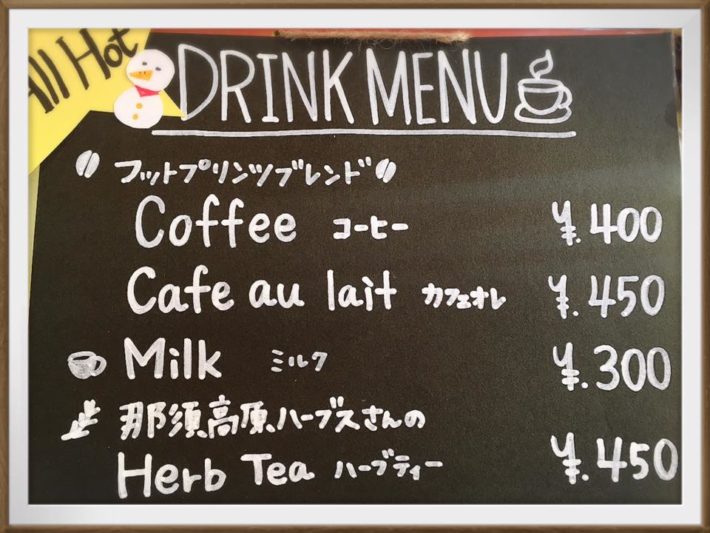 All Hot
DRINK MENU
フットプリンツブレンド
Coffee コーヒー ¥.400
Cafe au lait カフェオレ ¥.450
Milk ミルク ¥.300
那須高原ハーブスさんの
Herb Tea ハーブティー ¥.450